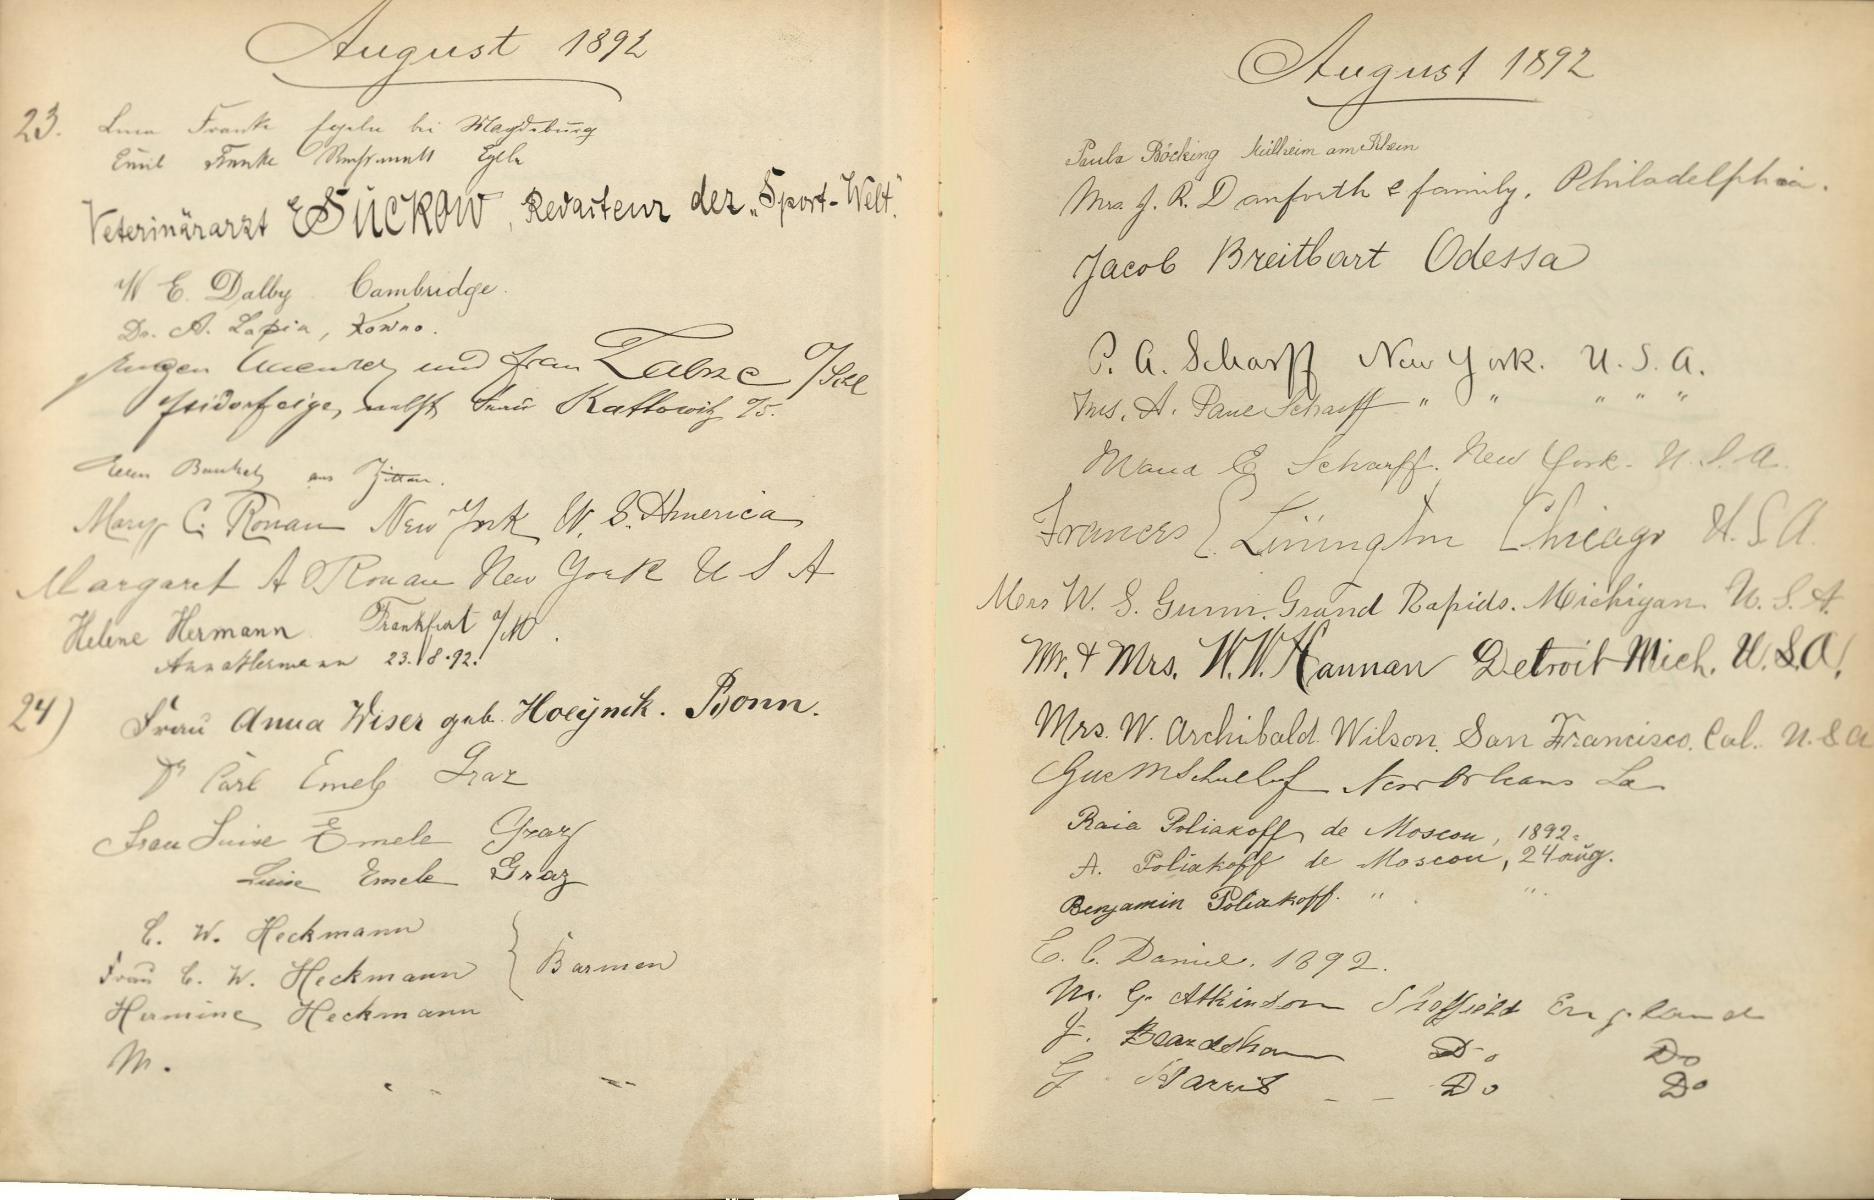 August 1892
23. Franke bei Magdeburg
Emil Franke Egeln
Veterinärarzt E Suckow, Redacteur der „Sport-Welt."
W E. Dalby. Cambridge.
Dr. A. Lapin, Kowno.
und Frau Zabrze O/Schl
nebst Frau Kattowitz O/S.
aus Zittau.
Mary C. Ronan New York U. S. America
Margaret A Ronan New York U S A
Helene Hermann Frankfurt a/M.
Anna Hermann 23./8.92.
24) Frau Anna Wiser geb. Hoeynck. Bonn.
Dr Carl Emele Graz
Frau Luise Emele Graz
Luise Emele Graz
C. W. Heckmann
Frau C. W. Heckmann } Barmen
Hermine Heckmann
M.
August 1892
Paula Böcking Mülheim am Rhein
Mrs J. R. Danforth & family. Philadelphia.
Jacob Breitbart Odessa
P. A. Scharff New York. U. S. A.
Mrs. A. Scharff " " " " "
Maud E Scharff. New York. U. S. A.
Frances E. Linington Chicago U. S. A.
Mrs W. S. Gunn. Grand Rapids. Michigan. U. S. A.
Mr. & Mrs. W. W. Hannan Detroit Mich. U. S. A!
Mrs. W. Archibald Wilson. San Francisco. Cal. U. S. A
Gus M Schulhof New Orleans La
Raia Poliakoff, de Moscou, 1892.
A. Poliakoff de Moscou, 24 aug.
Benjamin Poliakoff. " "
E. C. Daniel. 1892.
M. G. Atkinson Sheffield England
J. Beardshaw Do Do
G. Harris Do Do